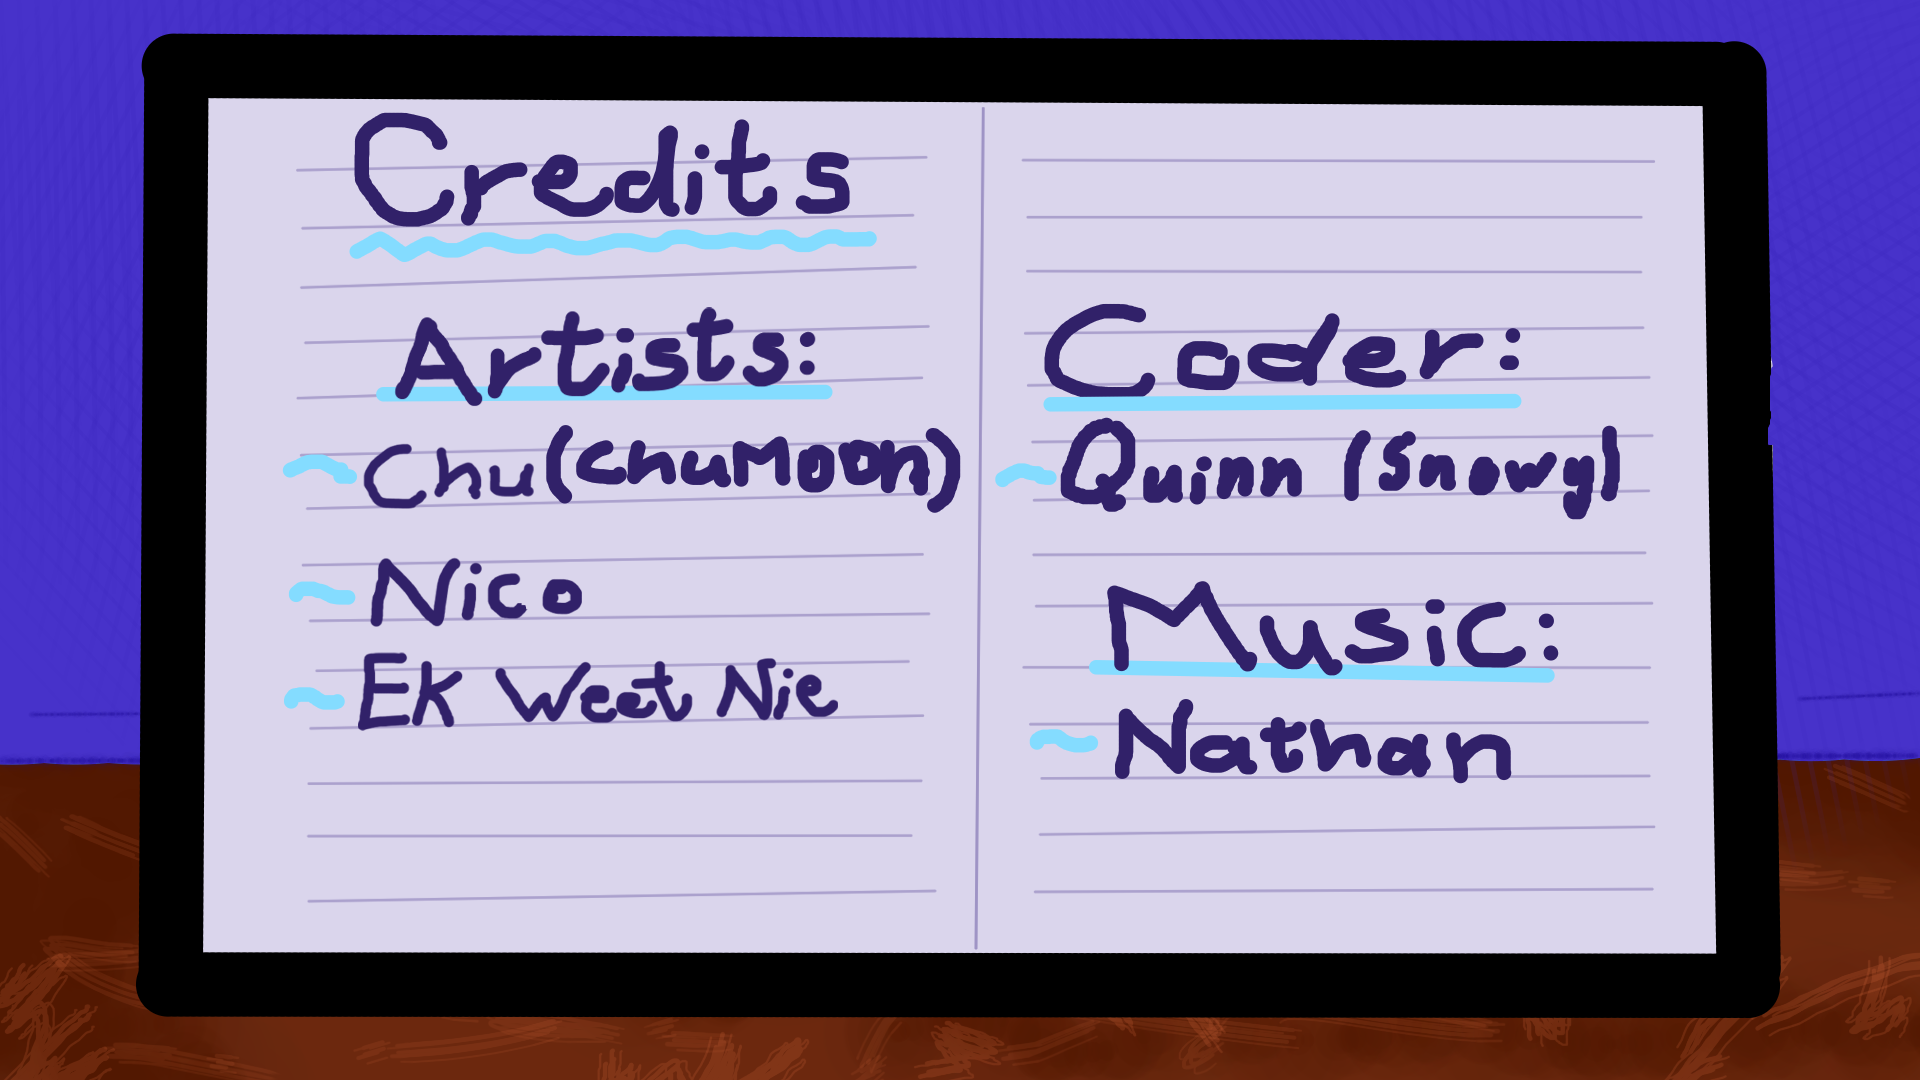 Credits
Artists:
Chu (ChuMoon)
Nico
Ek Weet Nie
Coder:
Quinn (Snowy)
Music:
Nathan